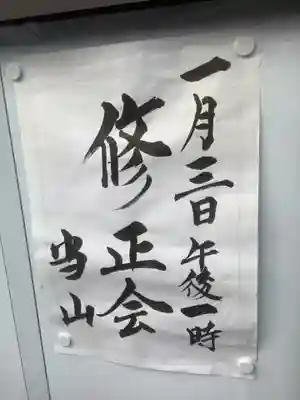 一月三日午後一時
修正会
当山